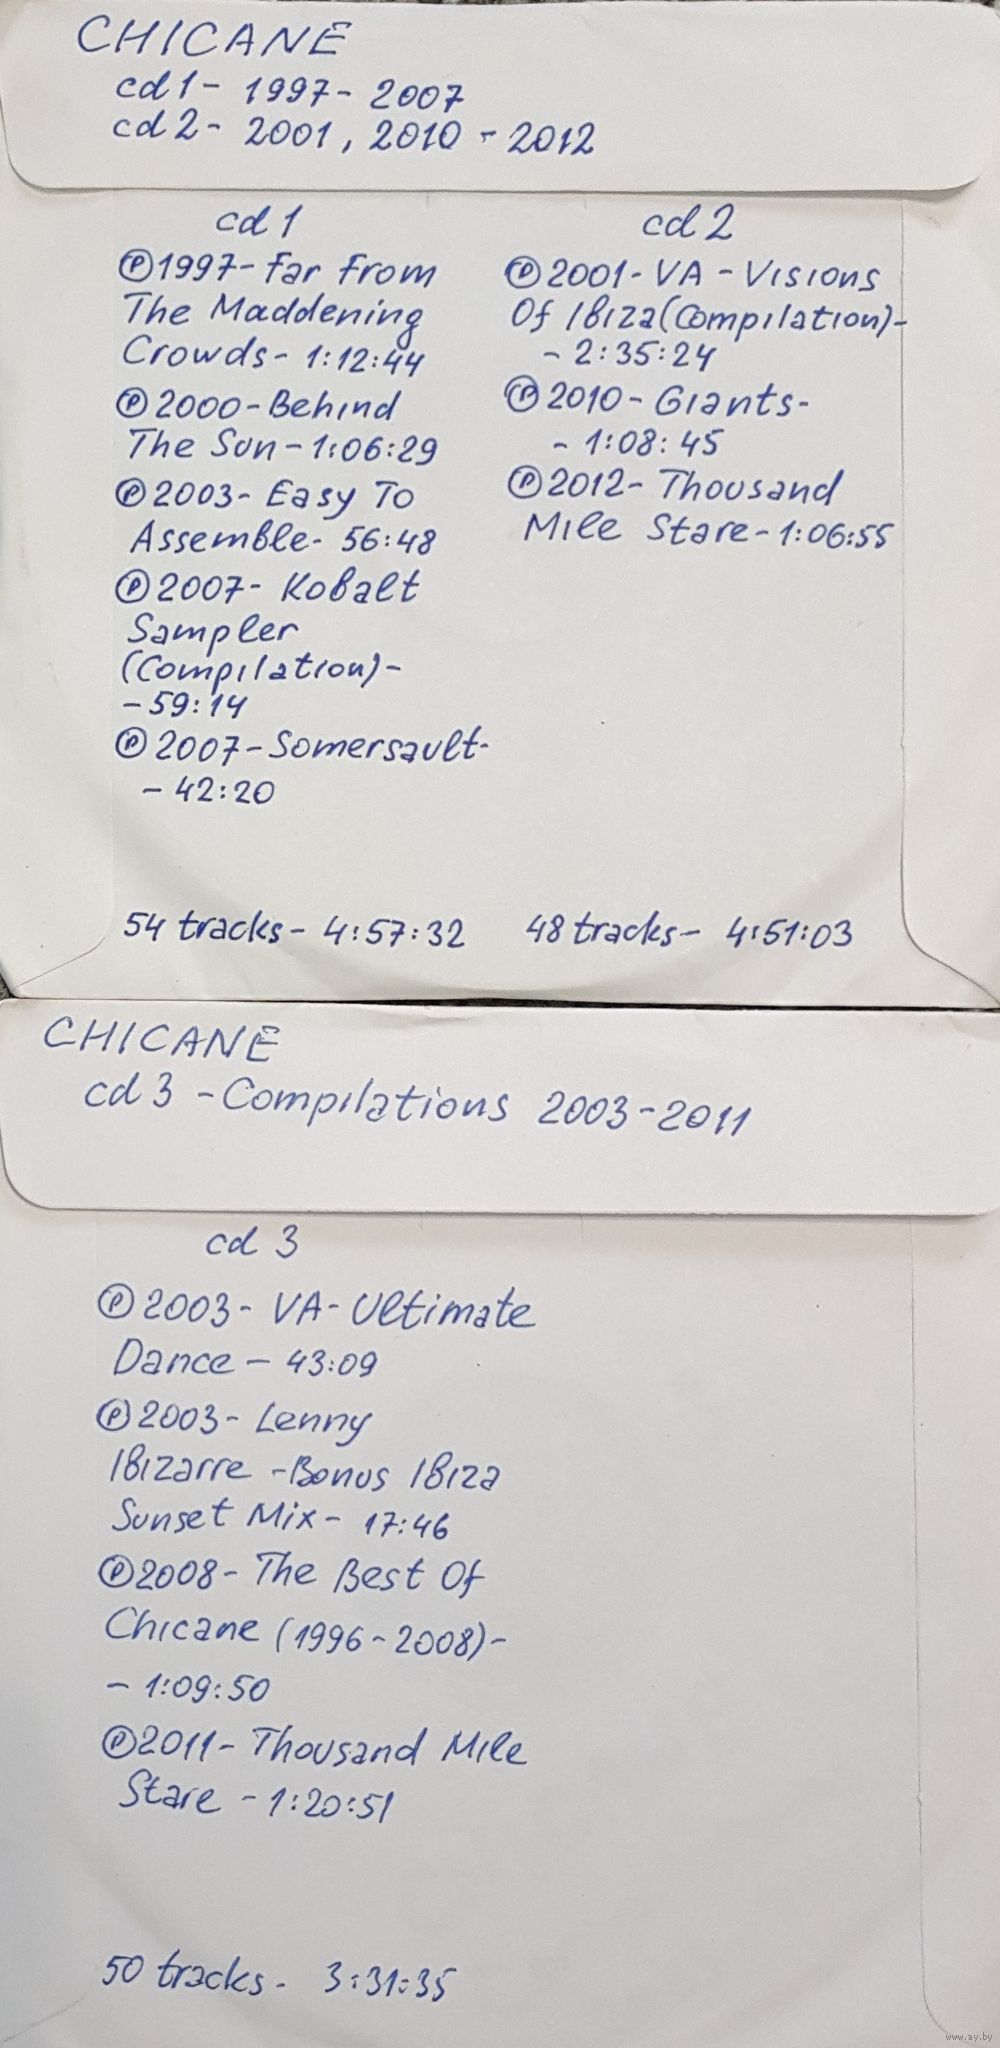 CHICANE
cd 1 - 1997 - 2007
cd 2 - 2001, 2010 - 2012
cd 1
Ⓟ 1997 - Far From
The Maddening
Crowds - 1:12:44
Ⓟ 2000 - Behind
The Sun - 1:06:29
Ⓟ 2003 - Easy To
Assemble - 56:48
Ⓟ 2007 - Kobalt
Sampler
(Compilation) -
- 59:14
Ⓟ 2007 - Somersault -
- 42:20
54 tracks - 4:57:32
cd 2
Ⓟ 2001 - VA - Visions
Of Ibiza (Compilation) -
- 2:35:24
Ⓟ 2010 - Giants -
- 1:08:45
Ⓟ 2012 - Thousand
Mile Stare - 1:06:55
48 tracks - 4:51:03
CHICANE
cd 3 - Compilations 2003 - 2011
cd 3
Ⓟ 2003 - VA - Ultimate
Dance - 43:09
Ⓟ 2003 - Lenny
Ibizarre - Bonus Ibiza
Sunset Mix - 17:46
Ⓟ 2008 - The Best Of
Chicane (1996 - 2008) -
- 1:09:50
Ⓟ 2011 - Thousand Mile
Stare - 1:20:51
50 tracks - 3:31:35
www.ay.by